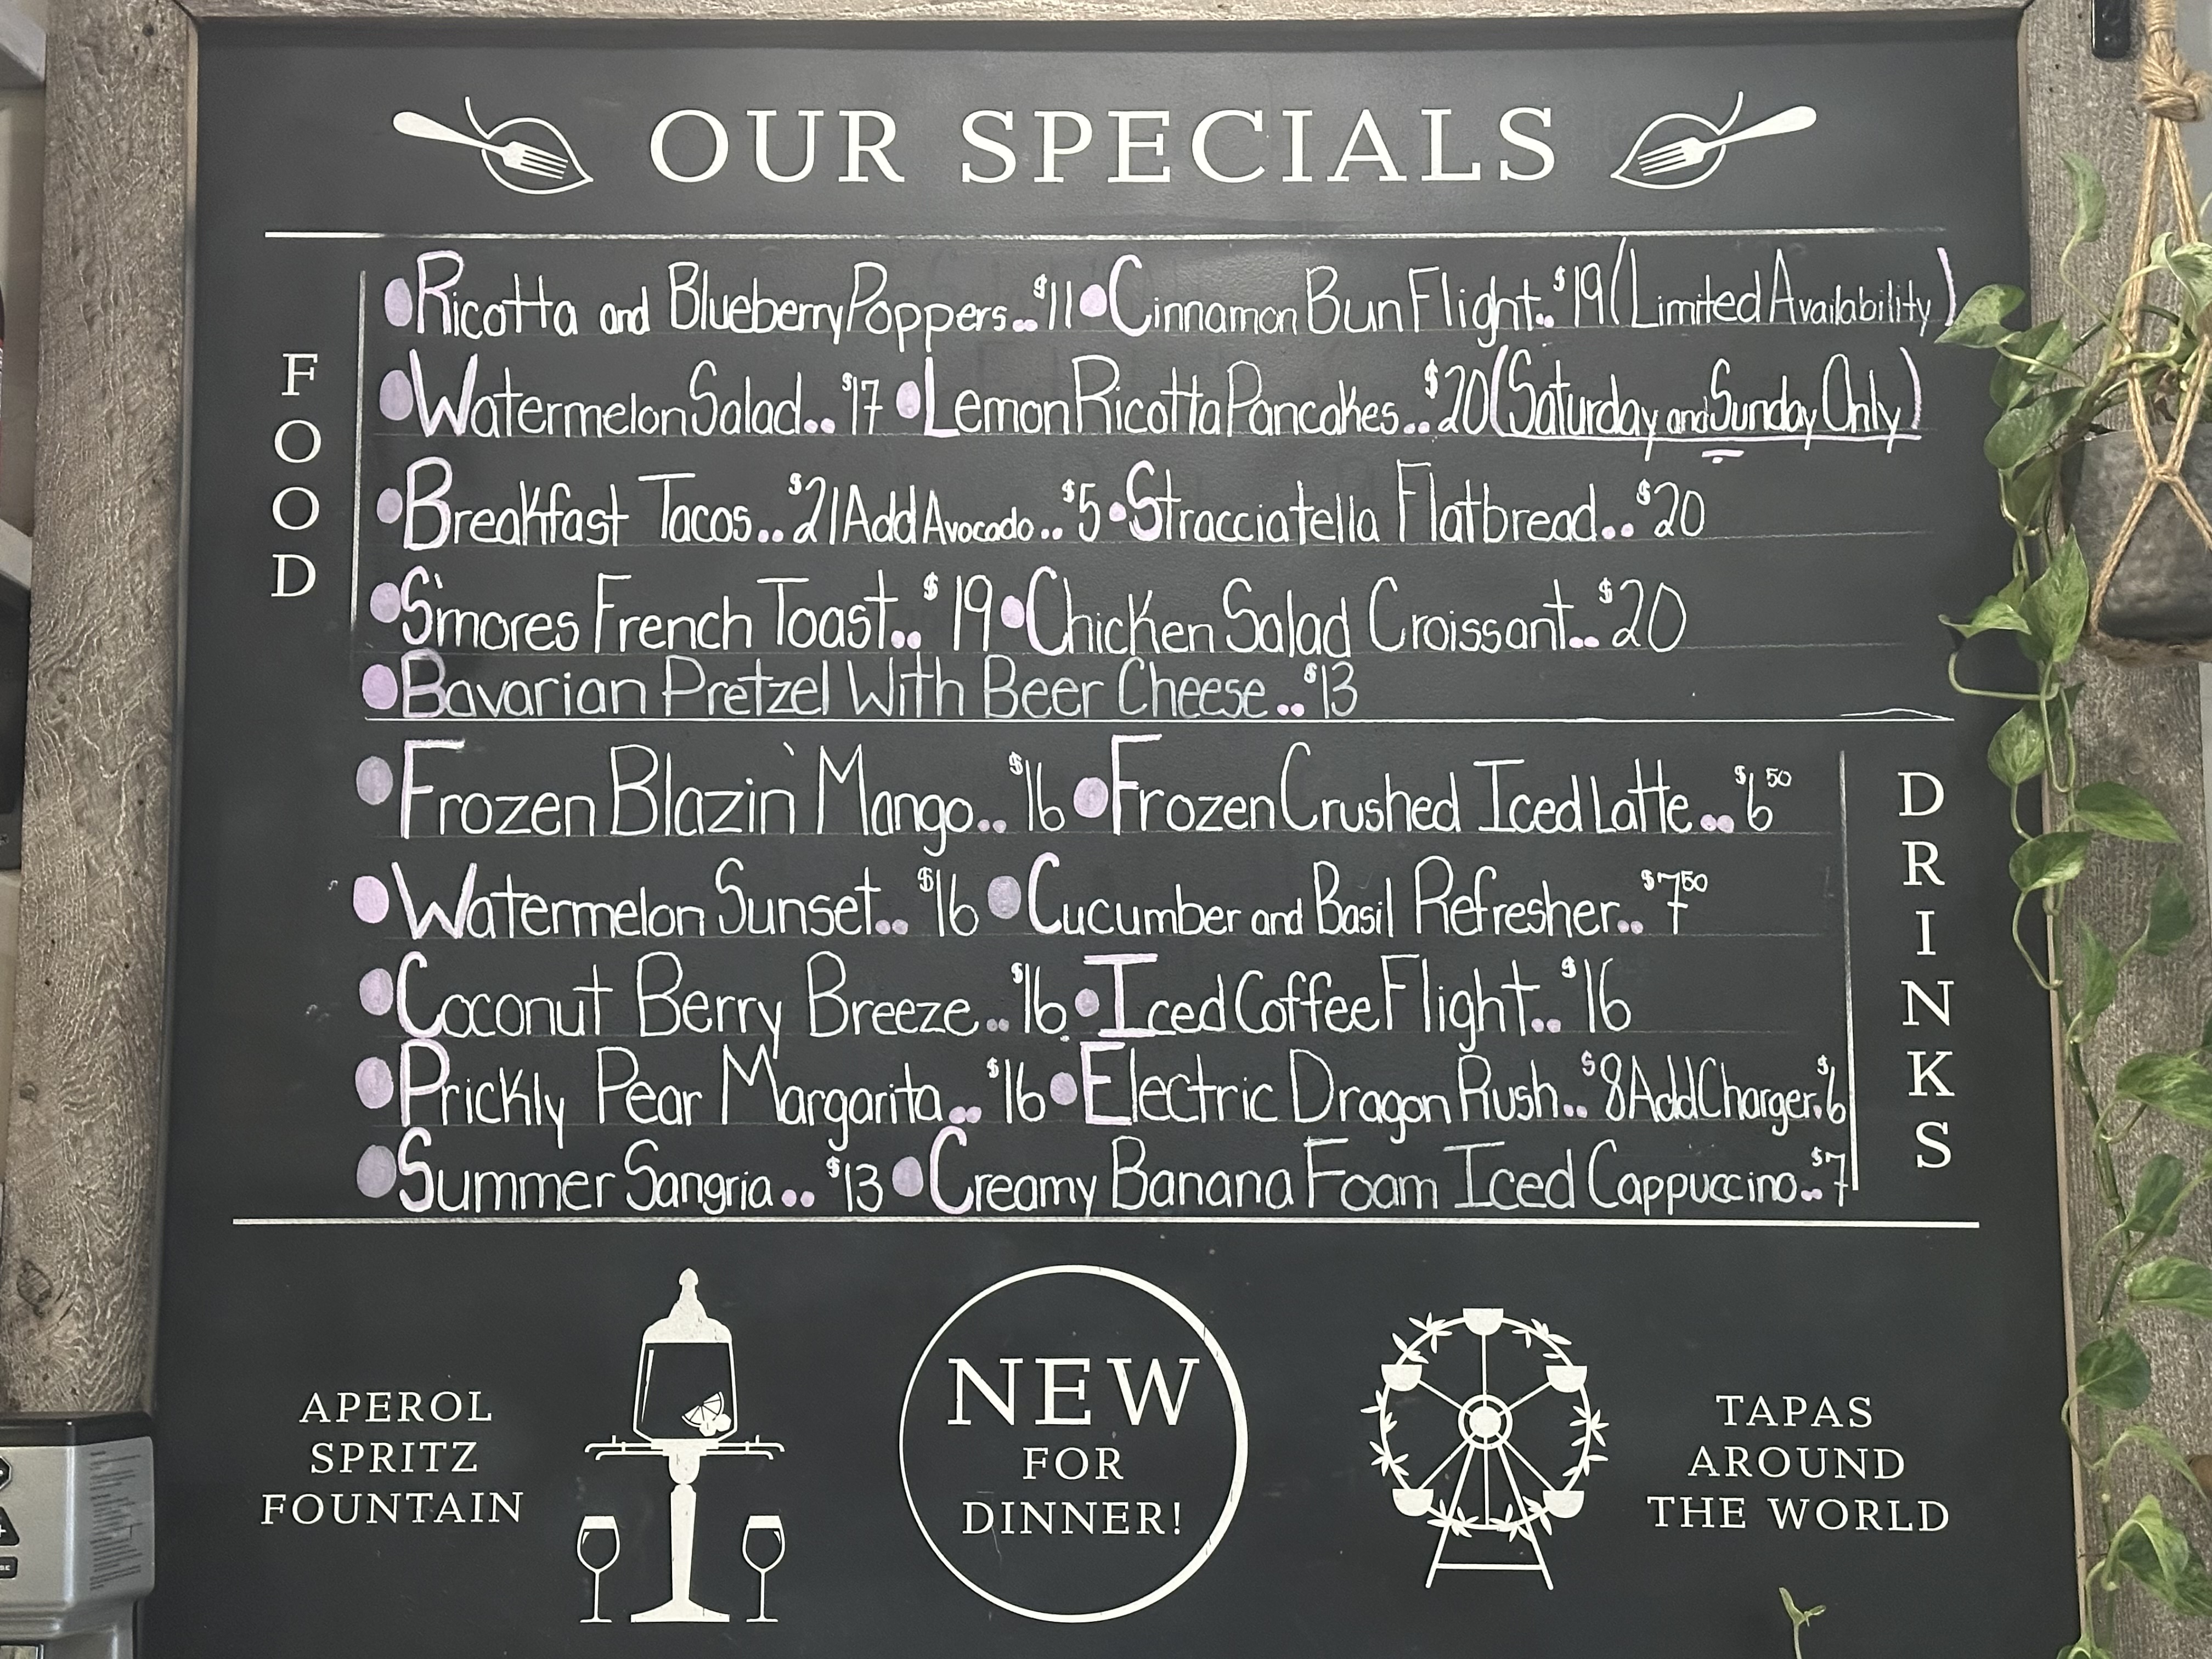 OUR SPECIALS
FOOD
Ricotta and Blueberry Poppers..$11 Cinnamon Bun Flight..$19 (Limited Availability)
Watermelon Salad..$17 Lemon Ricotta Pancakes..$20 (Saturday and Sunday Only)
Breakfast Tacos..$21 Add Avocado..$5 Stracciatella Flatbread..$20
S'mores French Toast..$19 Chicken Salad Croissant..$20
Bavarian Pretzel With Beer Cheese..$13
DRINKS
Frozen Blazin' Mango..$16 Frozen Crushed Iced Latte..$6.50
Watermelon Sunset..$16 Cucumber and Basil Refresher..$7.50
Coconut Berry Breeze..$16 Iced Coffee Flight..$16
Prickly Pear Margarita..$16 Electric Dragon Rush..$8 Add Charger.$6
Summer Sangria..$13 Creamy Banana Foam Iced Cappuccino..$7
APEROL
SPRITZ
FOUNTAIN
NEW
FOR
DINNER!
TAPAS
AROUND
THE WORLD